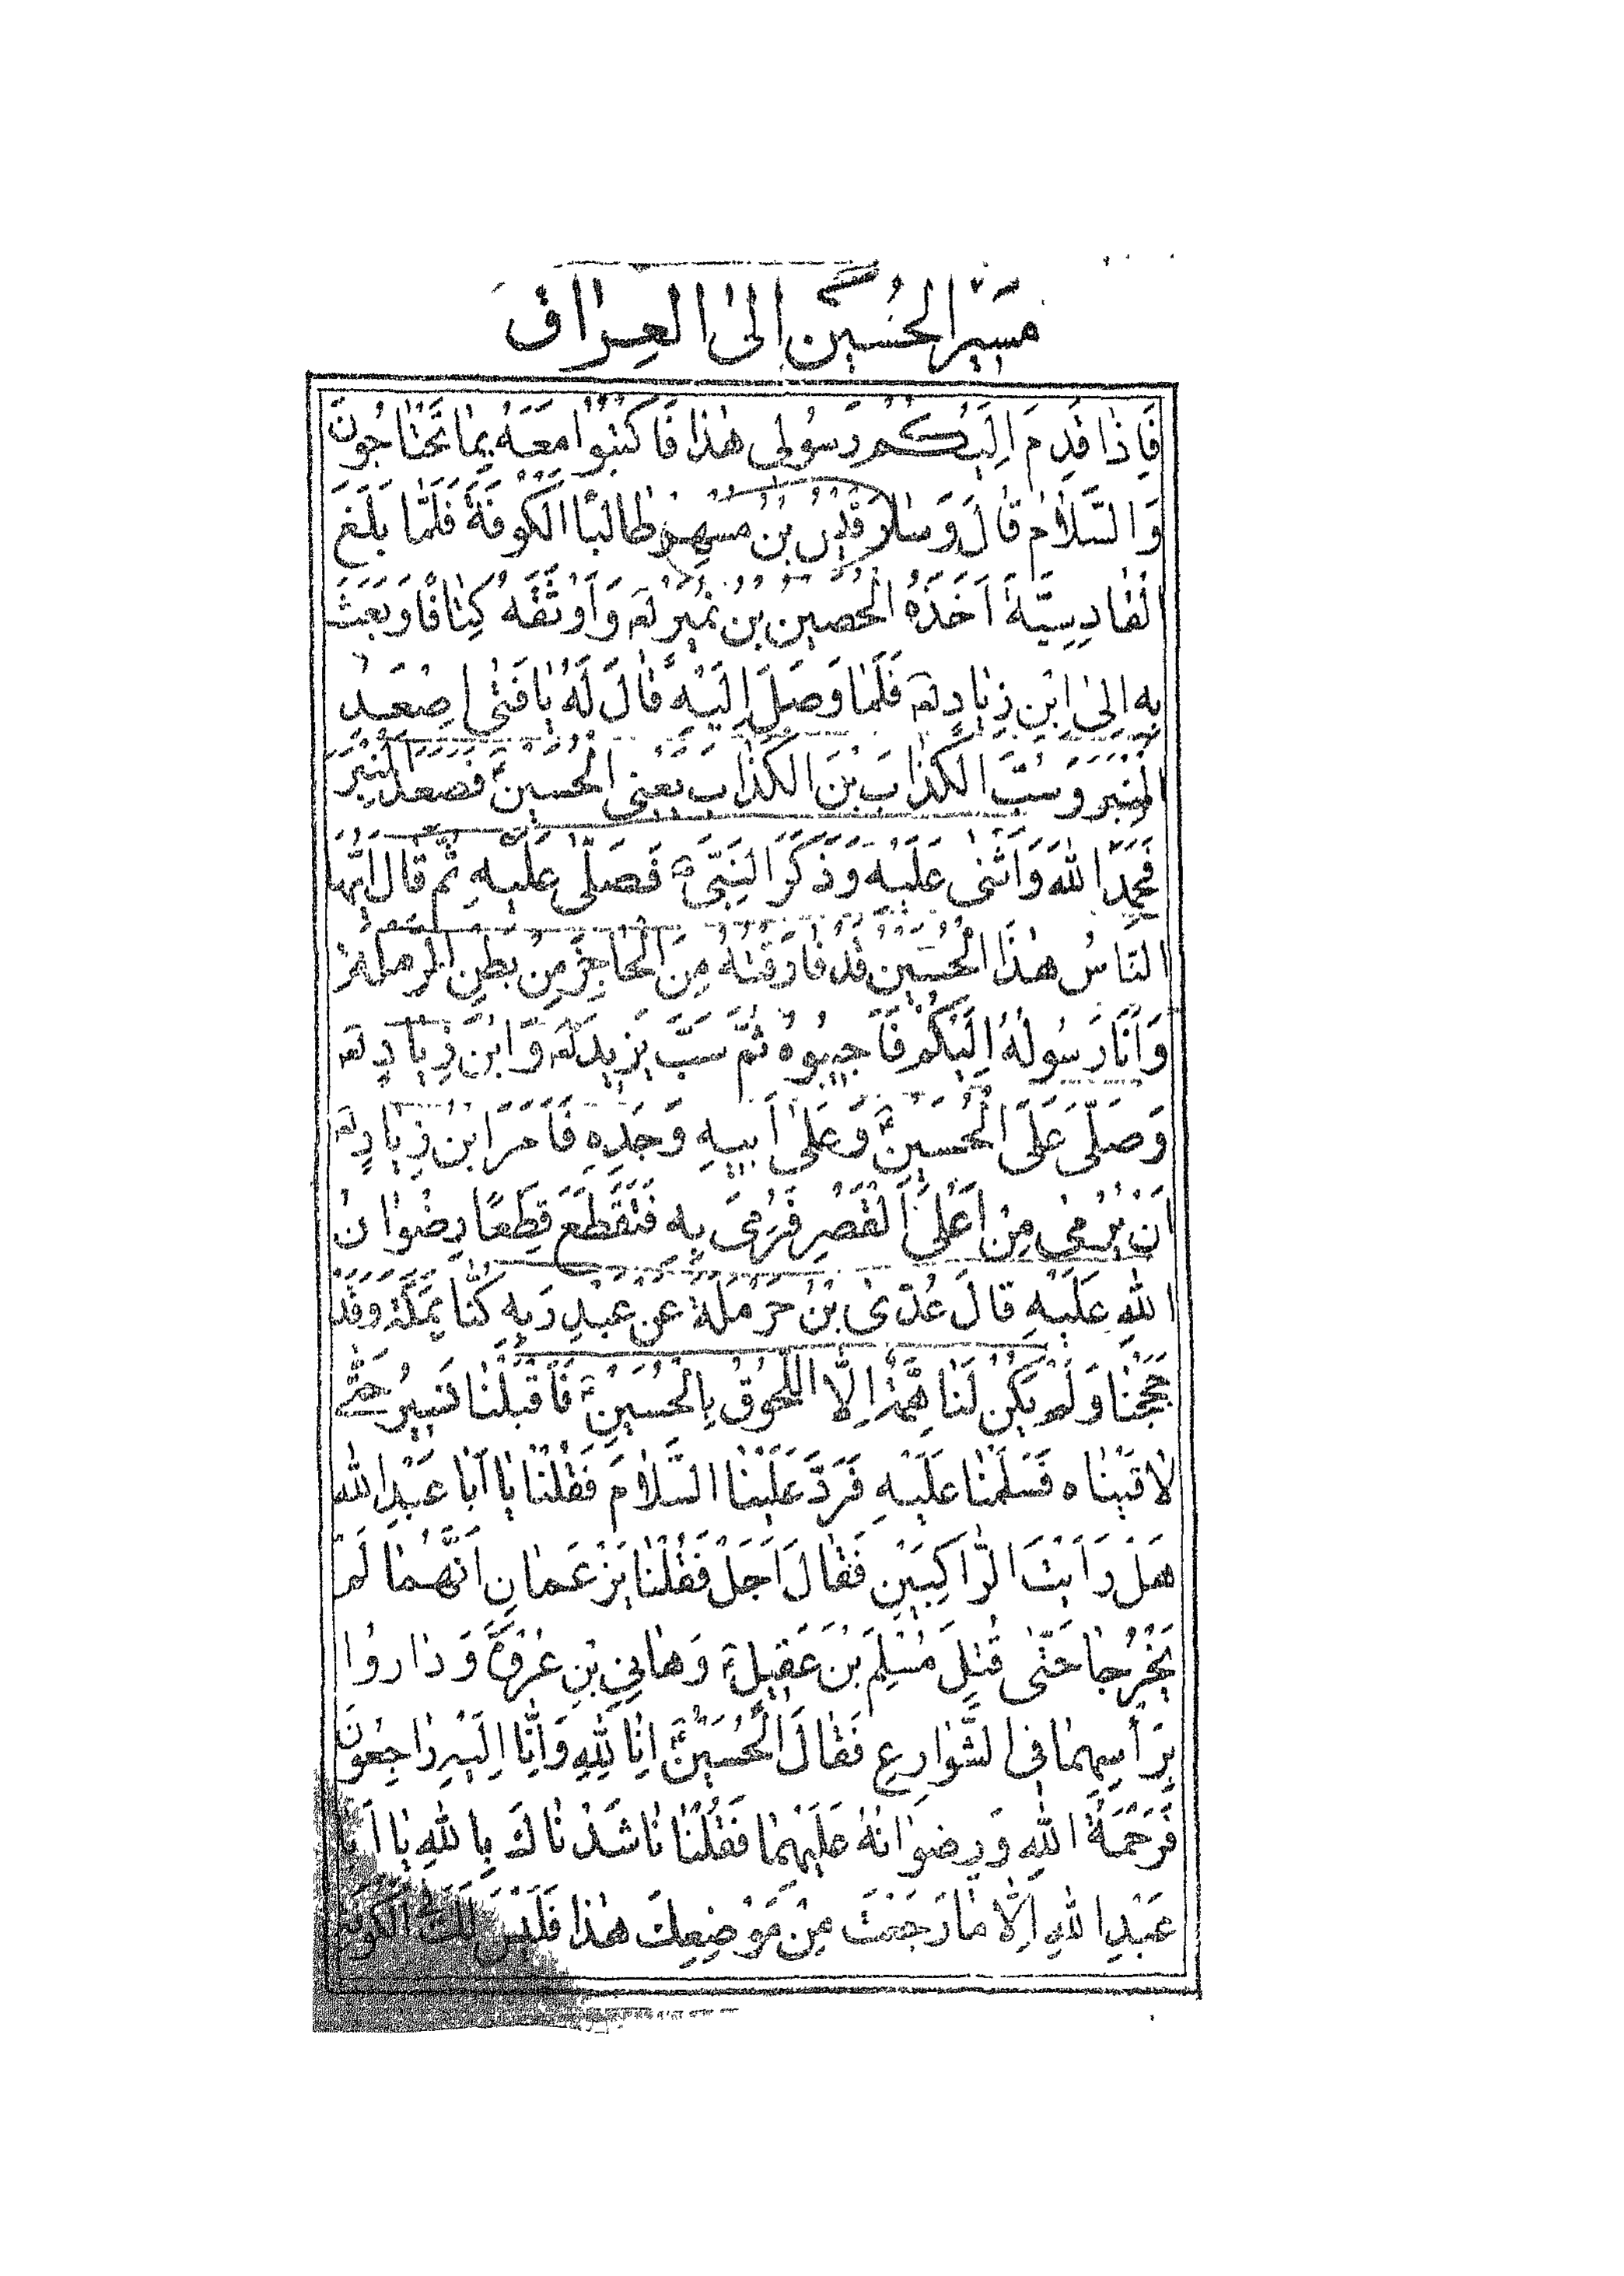 مَسيرُ الحُسَين إلى العِراق
فَاِذَا قَدِمَ اِلَيْكُمْ رَسُولى هٰذا فَاكْتُبُوا مَعَهُ بِمٰا تَحْتٰاجُونَ
وَالسَّلاٰمُ قٰالَ وَسٰارَ قَيْسُ بْنُ مُسْهِرٍ طٰالِبًا الْكُوفَةَ فَلَمّٰا بَلَغَ
الْقٰادِسِيَّةَ اَخَذَهُ الْحُصَيْنُ بْنُ نُمَيْرٍ لع وَاَوْثَقَهُ كِتٰافًا وَبَعَثَ
بِهِ اِلىٰ ابْنِ زِيٰادٍ لع فَلَمّٰا وَصَلَ اِلَيْهِ قٰالَ لَهُ يٰا فَتىٰ اِصْعَدِ
الْمِنْبَرَ وَسُبَّ الْكَذّٰابَ بْنَ الْكَذّٰابِ يَعْنى الْحُسَيْنَ ع فَصَعَدَ الْمِنْبَرَ
فَحَمِدَ اللهَ وَاَثْنىٰ عَلَيْهِ وَذَكَرَ النَّبِىَّ ص فَصَلّىٰ عَلَيْهِ ثُمَّ قٰالَ اَيُّهَا
النّٰاسُ هٰذَا الْحُسَيْنُ قَدْ فٰارَقْتُهُ مِنَ الْحٰاجِزِ مِنْ بَطْنِ الرُّمَّةِ
وَاَنَا رَسُولُهُ اِلَيْكُمْ فَاَجِيبُوهُ ثُمَّ سَبَّ يَزِيدَ لع وَابْنَ زِيٰادٍ لع
وَصَلّىٰ عَلَى الْحُسَيْنِ ع وَعَلىٰ اَبِيهِ وَجَدِّهِ فَاَمَرَ ابْنُ زِيٰادٍ لع
اَنْ يُرْمىٰ مِنْ اَعْلَى الْقَصْرِ فَرُمِىَ بِهِ فَتَقَطَّعَ قِطَعًا رِضْوٰانُ
اللهِ عَلَيْهِ قٰالَ عُدَىُّ بْنُ حَرْمَلَةَ عَنْ عَبْدِ رَبِّهِ كُنّٰا بِمَكَّةَ وَقَدْ
حَجَجْنٰا وَلَمْ يَكُنْ لَنٰا هِمَّةٌ اِلاَّ اللُّحُوقُ بِالْحُسَيْنِ ع فَاَقْبَلْنٰا نَسِيرُ حَتّىٰ
لاٰقَيْنٰاه فَسَلَّمْنٰا عَلَيْهِ فَرَدَّ عَلَيْنَا السَّلاٰمَ فَقُلْنٰا يٰا اَبٰا عَبْدِ اللهِ
هَلْ رَاَيْتَ الرّٰاكِبَيْنِ فَقٰالَ اَجَلْ فَقُلْنٰا يَزْعَمٰانِ اَنَّهُمٰا لَمْ
يَخْرُجٰا حَتّىٰ قُتِلَ مُسْلِمُ بْنُ عَقِيلٍ ع وَهٰانِى بْنِ عُرْوَةَ وَدٰارُوا
بِرَأْسِهِمٰا فِى الشَّوٰارِعِ فَقٰالَ الْحُسَيْنُ ع اِنّٰا لِلّٰهِ وَاِنّٰا اِلَيْهِ رٰاجِعُونَ
فَرَحْمَةُ اللهِ وَرِضْوٰانُهُ عَلَيْهِمٰا فَقُلْنٰا نٰاشَدْنٰاكَ بِاللهِ يٰا اَبٰا
عَبْدِ اللهِ اِلاّٰ مٰا رَجَعْتَ مِنْ مَوْضِعِكَ هٰذٰا فَلَيْسَ لَكَ فِى الْكُوفَةِ